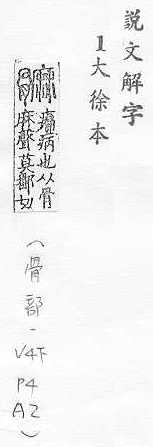 説文解字
1大徐本
髍
病也从骨
麻聲莫鄱切
（骨部－
V4下
P4
A2
）